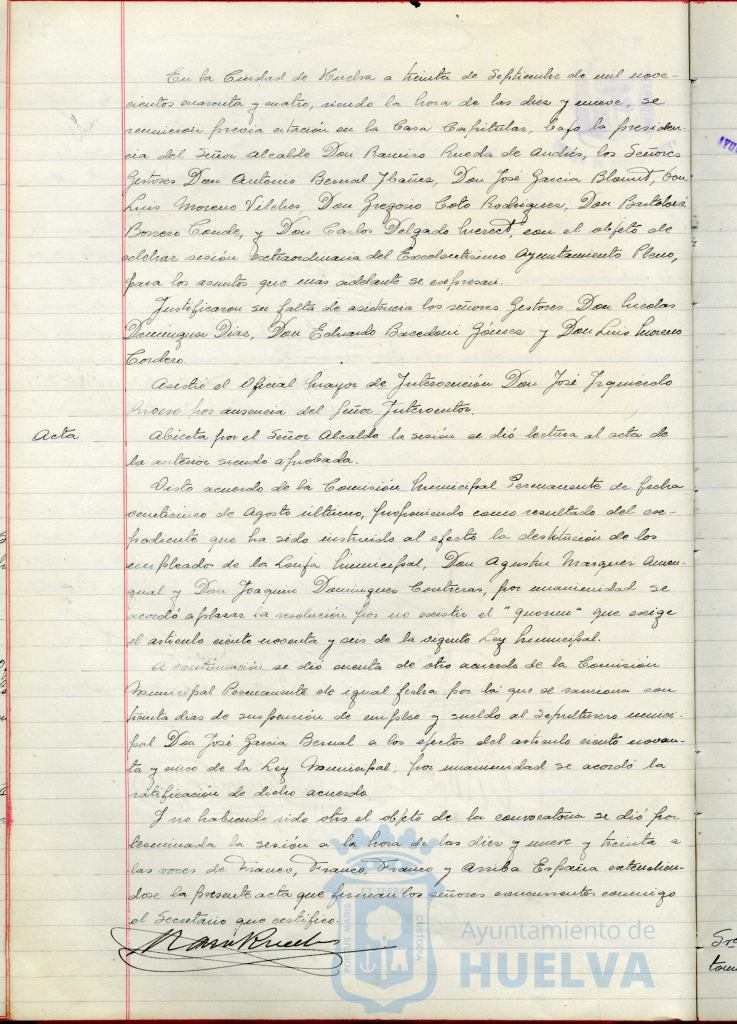 En la Ciudad de Huelva a treinta de Septiembre de mil nove-
cientos cuarenta y cuatro, siendo la hora de las diez y nueve, se
reunieron previa citación en la Casa Capitular, bajo la presiden-
cia del Señor Alcalde Don Ramiro Rueda de Andrés, los Señores
Gestores Don Antonio Bernal Ibañez, Don José Garcia Blount, Don
Luis Moreno Vilches, Don Gregorio Coto Rodriguez, Don Bartolomé
Borrero Conde, y Don Carlos Delgado, con el objeto de
celebrar sesión extraordinaria del Excelentisimo Ayuntamiento Pleno,
para los asuntos que más adelante se expresan.
Justificaron su falta de asistencia los señores Gestores Don Nicolas
Dominguez Diaz, Don Eduardo Gómez y Don Luis Moreno
Cordero.
Asistió el Oficial Mayor de Intervención Don José Izquierdo
Rivero por ausencia del Señor Interventor.
Acta
Abierta por el Señor Alcalde la sesión se dió lectura al acta de
la anterior siendo aprobada.
Visto acuerdo de la Comisión Municipal Permanente de fecha
veinticinco de Agosto último, proponiendo como resultado del ex-
pediente que ha sido instruido al efecto la destitución de los
empleado de la Lonja Municipal, Don Agustin Marquez Amen-
gual y Don Joaquin Dominguez Contreras, por unanimidad se
acordó aplazar la resolución por no existir el "quorum" que exige
el articulo ciento noventa y seis de la vigente Ley Municipal.
A continuación se dió cuenta de otro acuerdo de la Comisión
Municipal Permanente de igual fecha por la que se sanciona con
treinta dias de suspensión de empleo y sueldo al Sepulturero munici-
pal Don José Garcia Bernal a los efectos del articulo ciento noven-
ta y cinco de la Ley Municipal, por unanimidad se acordó la
ratificación de dicho acuerdo.
Y no habiendo sido otro el objeto de la convocatoria se dió por
terminada la sesión a la hora de las diez y nueve y treinta a
las voces de Franco, Franco, Franco y Arriba España extendien-
dose la presente acta que firman los señores concurrentes conmigo
el Secretario que certifico.
PORTUS MARIS ET TERRAE CUSTODIA
Ayuntamiento de
HUELVA